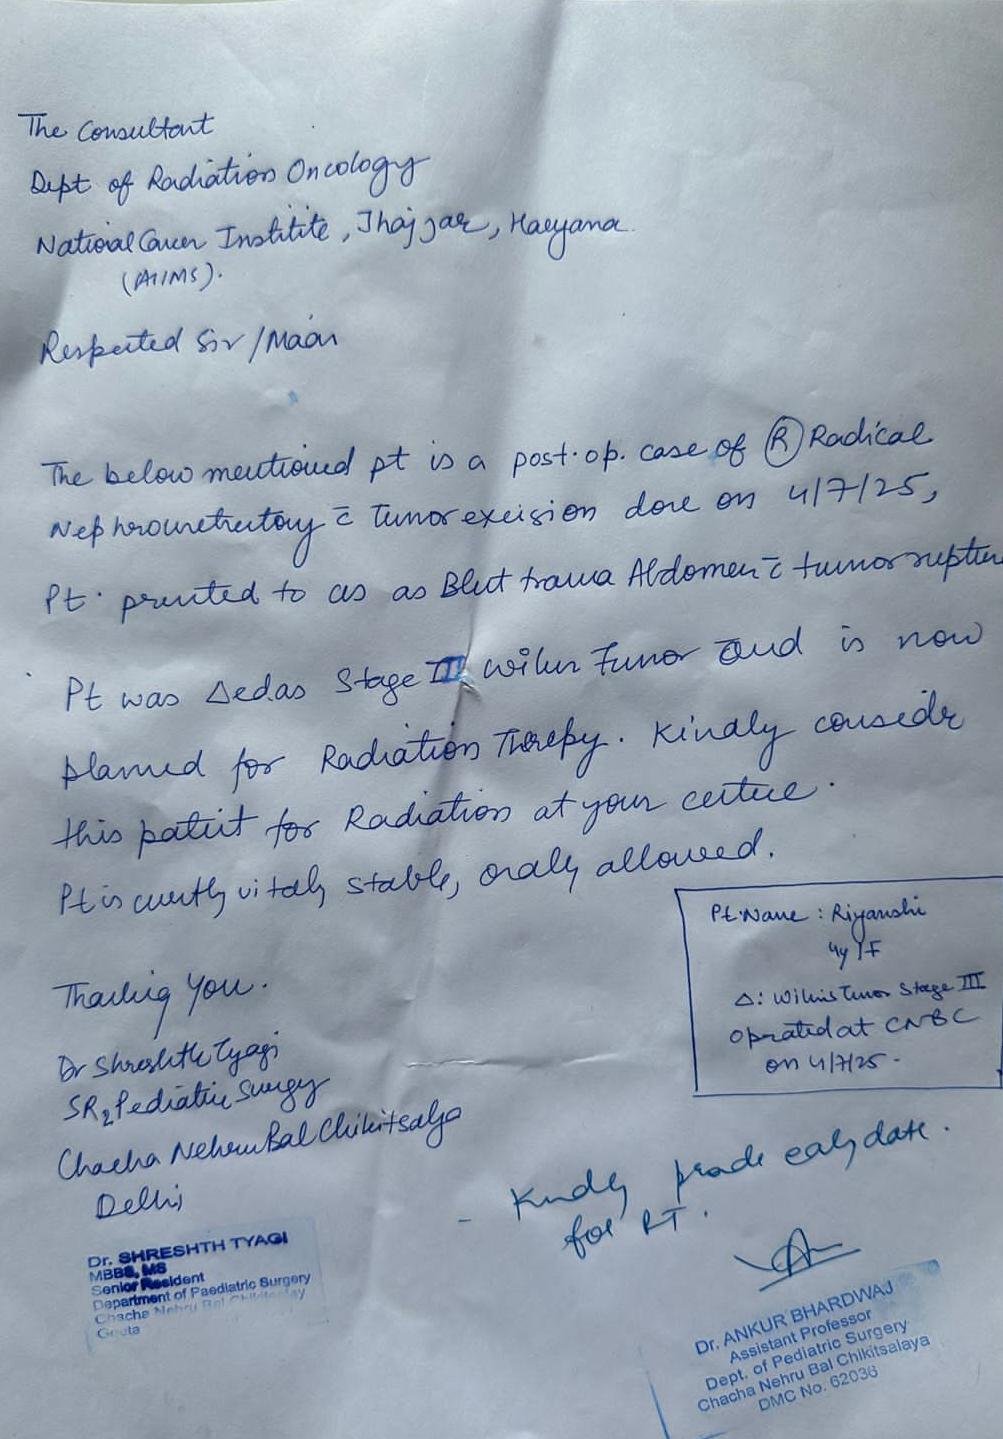 The Consultant
Dept of Radiation Oncology
National Cancer Institite, Jhajjar, Haryana
(AIIMS).
Respected Sir/Maam
The below mentioned pt is a post.op. case of (R) Radical
Nephrouretectomy c̄ Tumor excision done on 4/7/25,
Pt. presented to us as Blunt trauma Abdomen c̄ tumor rupture
Pt was Δed as Stage III Wilm Tumor and is now
planned for Radiation Therepy. Kindly consider
this patient for Radiation at your centre.
Pt is currently vitaly stable, oraly allowed.
Pt. Name : Riyanshi
4y/F
Δ: Wilms Tumor Stage III
Oprated at CNBC
on 4/7/25.
Thanking You.
Dr Shreshth Tyagi
SR2 Pediatric Surgery
Chacha Nehru Bal Chikitsalya
Delhi
- Kindly provide early date.
for RT.
Dr. SHRESHTH TYAGI
MBBS, MS
Senior Resident
Department of Paediatric Surgery
Chacha Nehru Bal Chikitsalay
Geeta
Dr. ANKUR BHARDWAJ
Assistant Professor
Dept. of Pediatric Surgery
Chacha Nehru Bal Chikitsalaya
DMC No. 62036